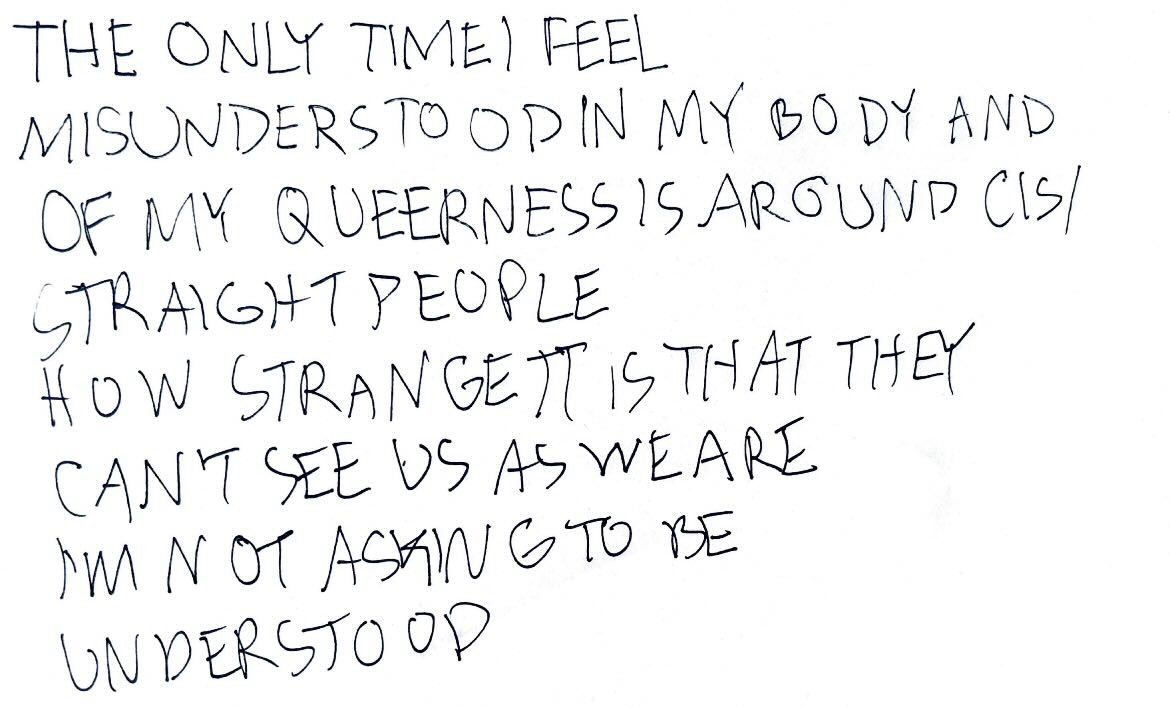 THE ONLY TIME I FEEL
MISUNDERSTOOD IN MY BODY AND
OF MY QUEERNESS IS AROUND CIS/
STRAIGHT PEOPLE
HOW STRANGE IT IS THAT THEY
CAN'T SEE US AS WE ARE
I'M NOT ASKING TO BE
UNDERSTOOD